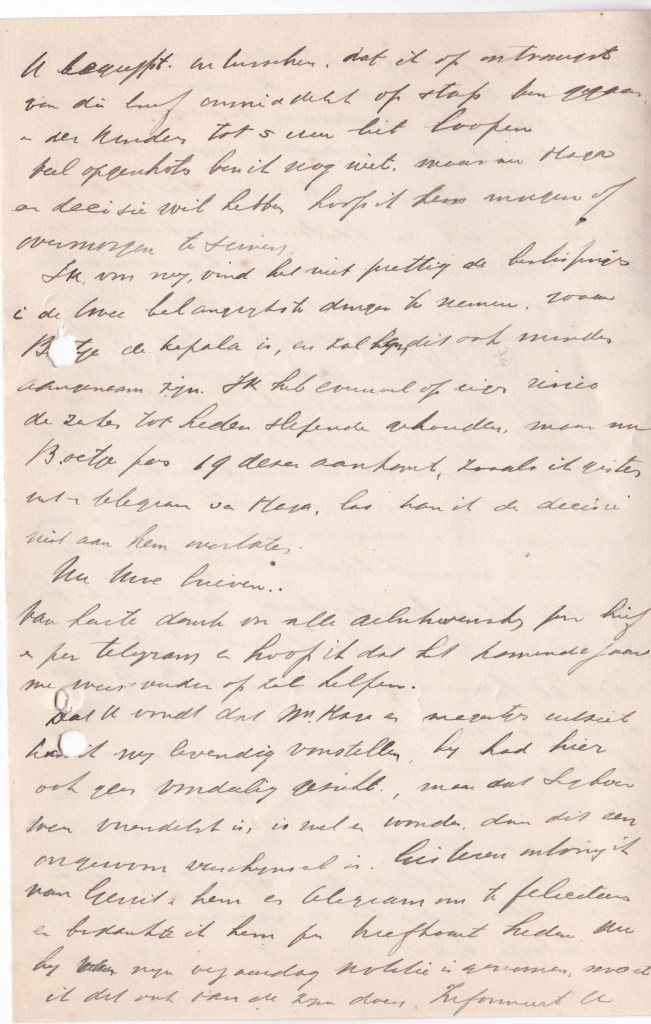 U begrijpt intusschen, dat ik op ontvangst
van die brief onmiddelijk op stap ben gegaan,
den tot 5 uur liet loopen
Veel opgeschoten ben ik nog niet, maar nu Haga
een decisie wil hebben hoop ik hem morgen of
overmorgen te seinen.
Ik, voor mij, vind het niet prettig de beslissingen
in de twee belangrijkste dingen te nemen, waar
de kepala is, en zal hem dit ook minder
aangenaam zijn. Ik heb evenwel op eigen risico
de zaken tot heden slepende gehouden, maar nu
Boetje per 19 dezer aankomt, zooals ik gister
telegram van Haga, kan ik de decisie
niet aan hem overlaten.
Nu Uwe brieven..
Van harte dank voor alle gelukwenschen per brief
en per telegram en hoop ik dat het komende jaar
me weer verder op zal helpen.
Dat U vindt dat Mr. Haga er uitziet
kan ik mij levendig voorstellen, hij had hier
ook geen voordeelig gezicht, maar dat
weer vriendelijk is, is wel een wonder, daar dit een
ongewoon verschijnsel is. Gisteren ontving ik
van Gerrit een telegram om te feliciteeren
en bedankte ik hem per briefkaart heden. Nu
bij mijn verjaardag notitie is genomen, moet
ik dit ook van de zijne doen. Informeert U